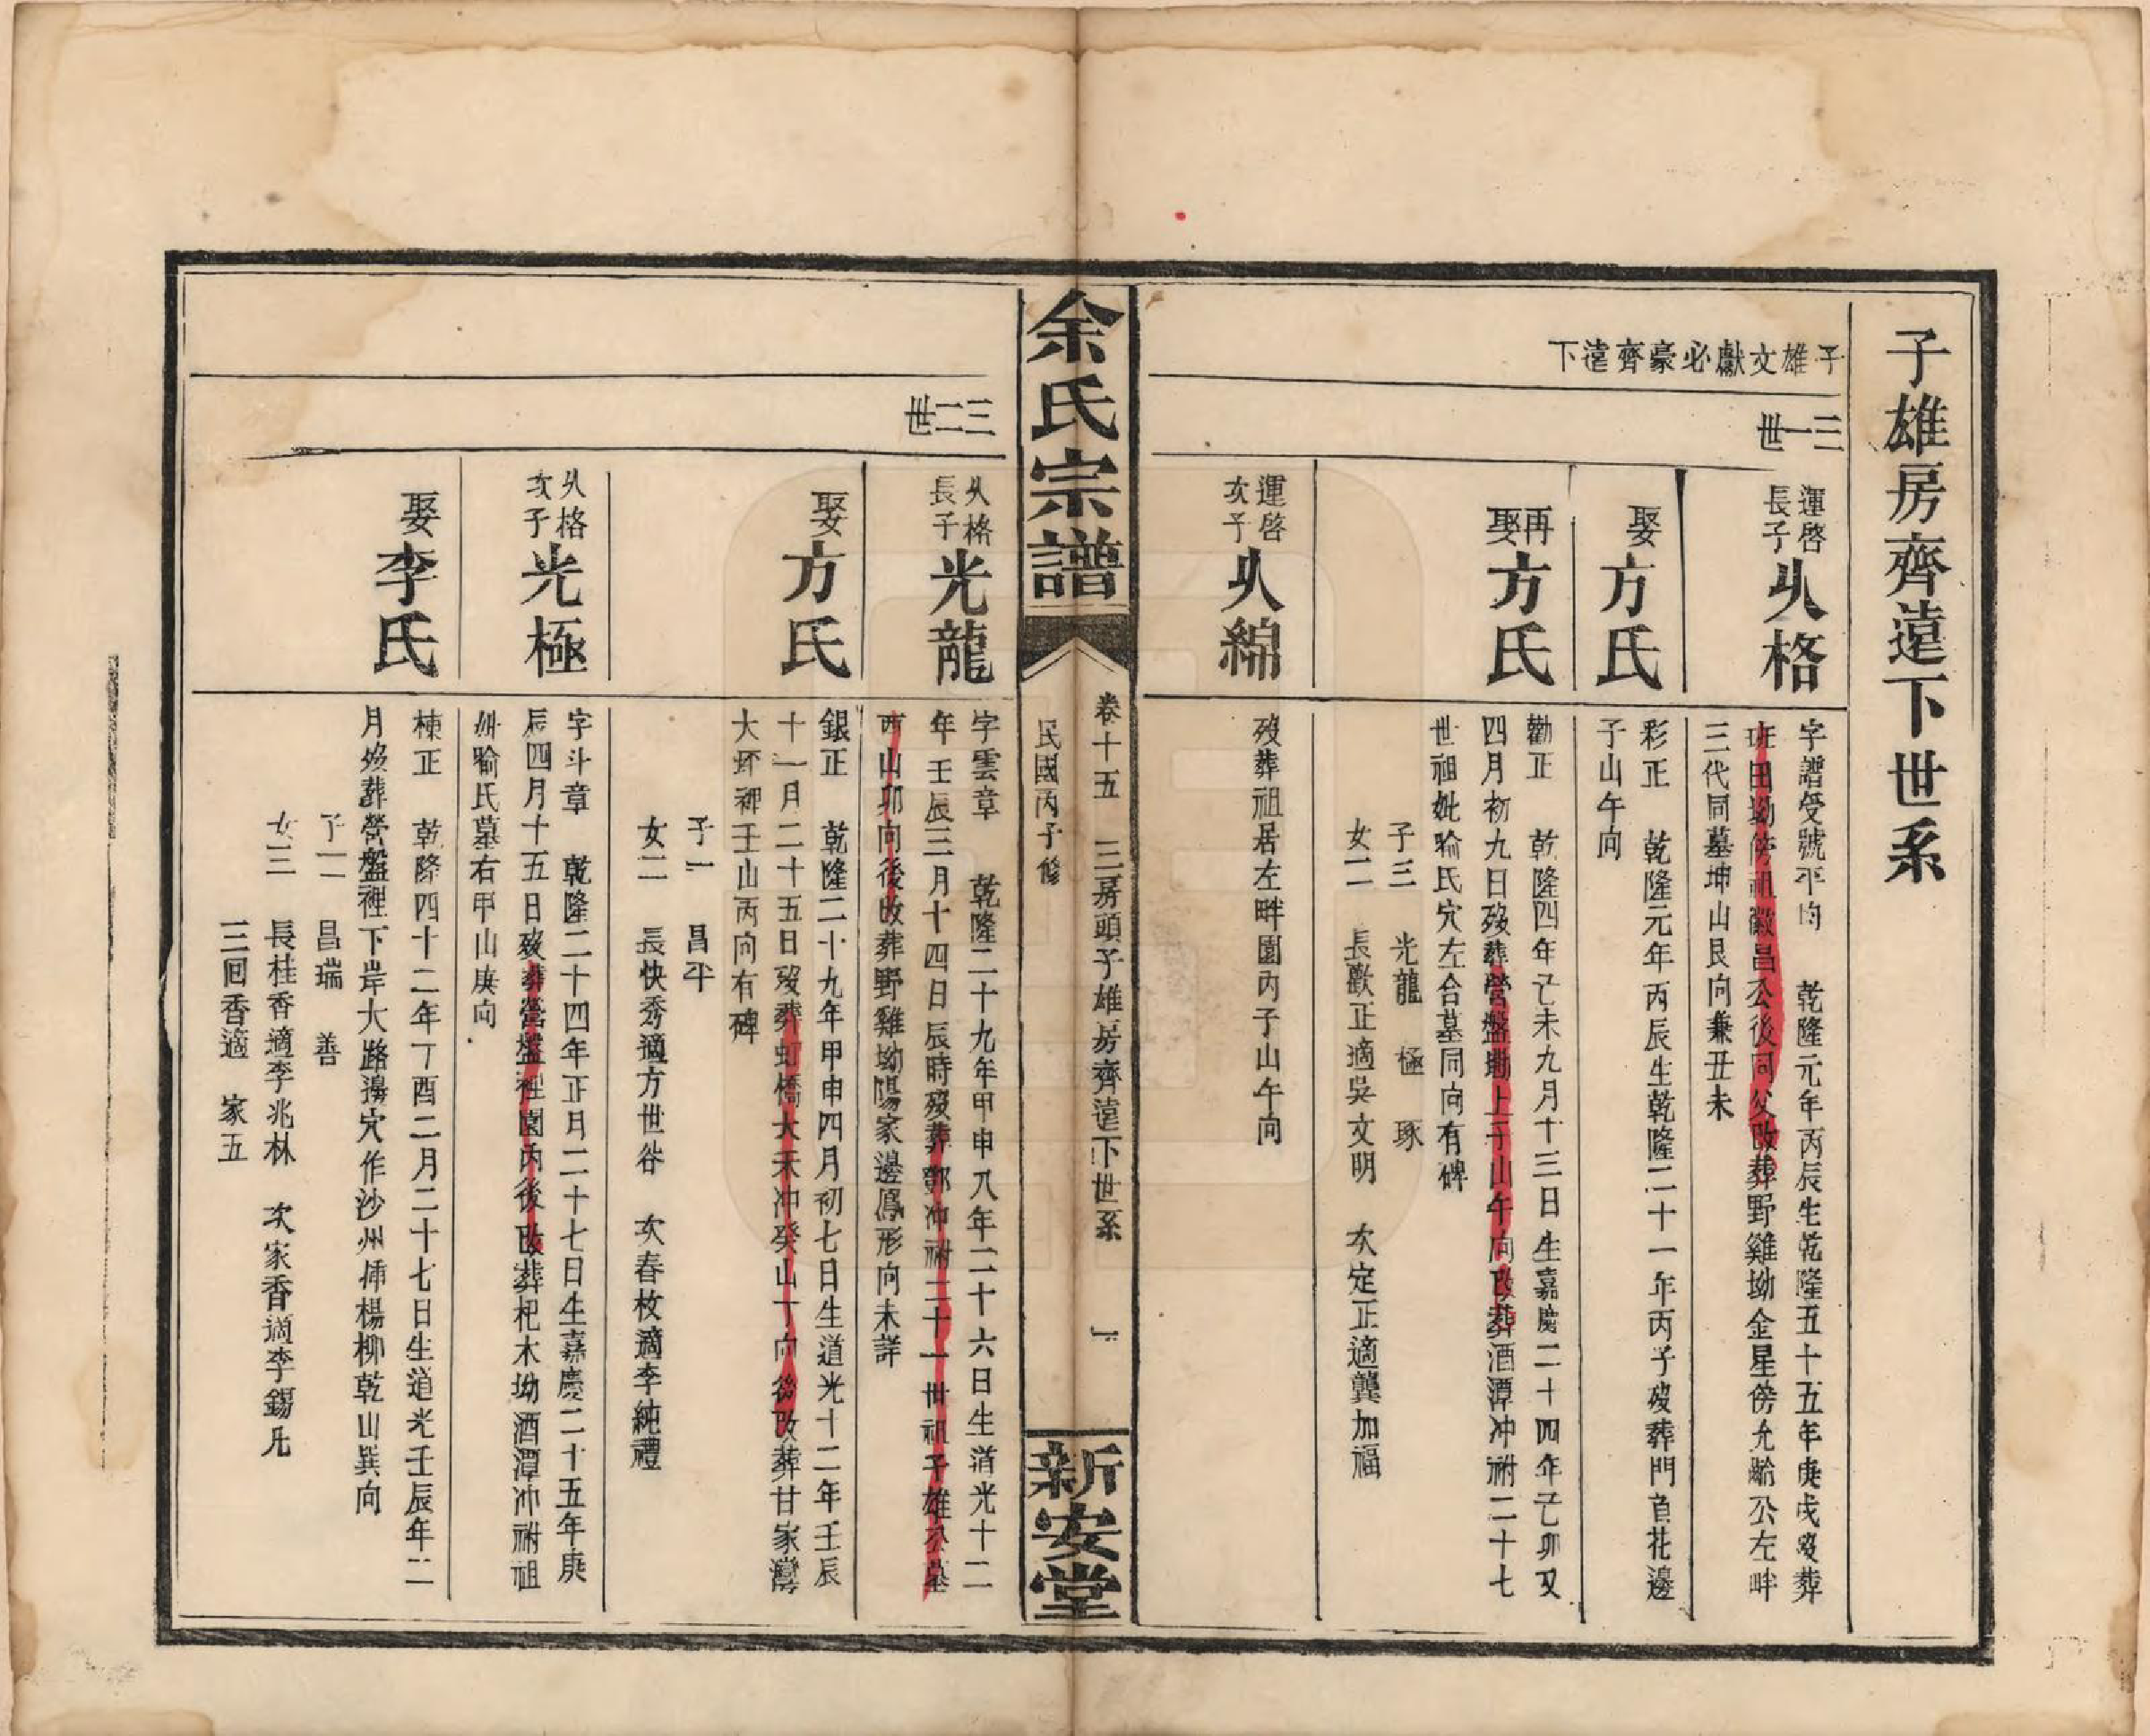 子雄房齊遠下世系
子雄文獻必豪齊遠下
三一世
運啓
長子
火格
字譜受號平均 乾隆元年丙辰生乾隆五十五年庚戌歿葬
班田坳傍祖徽昌公後同父改葬野雞坳金星傍允公左畔
三代同墓坤山艮向兼丑未
娶
方氏
彩正 乾隆元年丙辰生乾隆二十一年丙子歿葬門首花邊
子山午向
再娶
方氏
勸正 乾隆四年己未九月十三日生嘉慶二十四年己卯又
四月初九日歿葬營盤墈上子山午向改葬酒潭冲祔二十七
世祖妣喻氏穴左合墓同向有碑
子三 光龍 極 琢
女二 長歡正適吳文明 次定正適龔加福
運啓
次子
火綿
歿葬祖居左畔園內子山午向
余氏宗譜
卷十五 三房頭子雄房齊遠下世系 一
民國丙子修
新安堂
三二世
火格
長子
光龍
字雲章 乾隆二十九年甲申八年二十六日生道光十二
年壬辰三月十四日辰時歿葬鄧冲祔二十一世祖子雄公墓
酉山卯向後改葬野雞坳陽家邊鳳形向未詳
娶
方氏
銀正 乾隆二十九年甲申四月初七日生道光十二年壬辰
十一月二十五日歿葬虹橋大禾冲癸山丁向後改葬甘家灣
大坏裡壬山丙向有碑
子一 昌平
女二 長快秀適方世谷 次春枚適李純禮
火格
次子
光極
字斗章 乾隆二十四年正月二十七日生嘉慶二十五年庚
辰四月十五日歿葬營盤裡園內後改葬杷木坳酒潭冲祔祖
妣喻氏墓右甲山庚向
娶
李氏
棟正 乾隆四十二年丁酉二月二十七日生道光壬辰年二
月歿葬營盤裡下岸大路邊穴作沙州揷楊柳乾山巽向
子二 昌瑞 善
女三 長桂香適李兆林 次家香適李錫凡
三回香適 家五